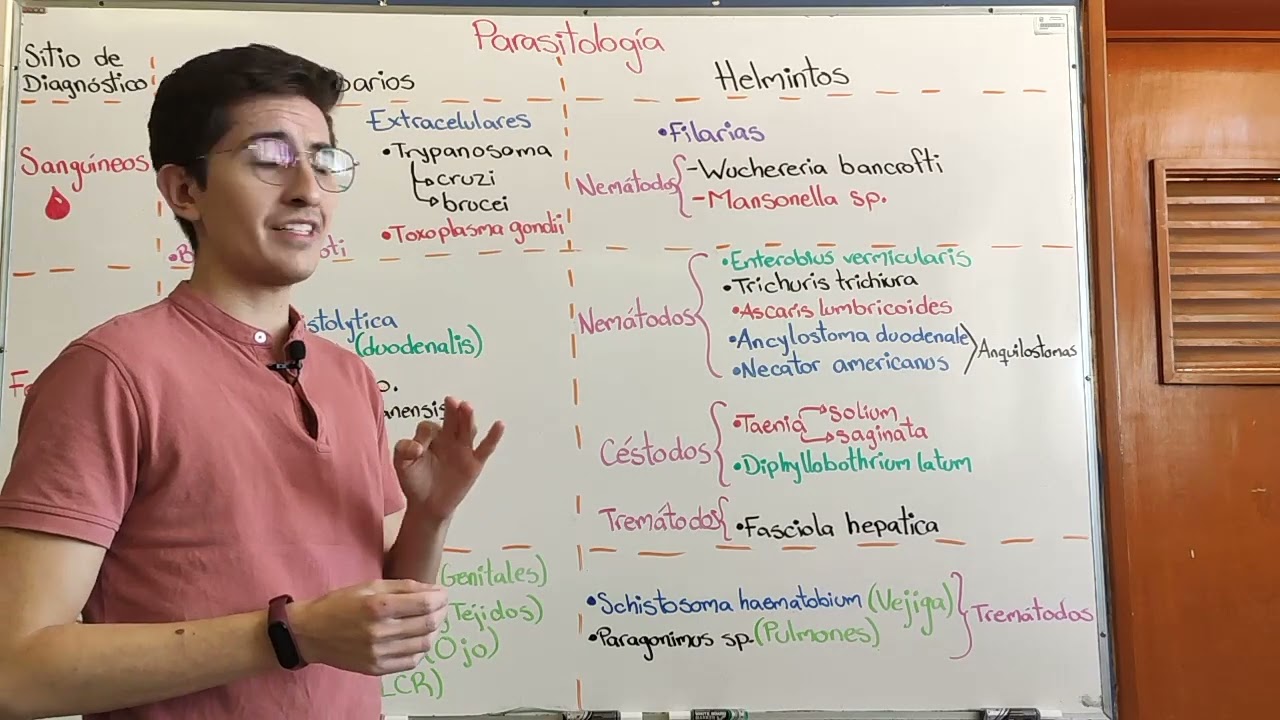 Parasitología
Sitio de
Diagnóstico
Helmintos
Sanguíneos
Extracelulares
•Trypanosoma
cruzi
brucei
•Toxoplasma gondii
•Filarias
Nemátodos
-Wuchereria bancrofti
-Mansonella sp.
(duodenalis)
Nemátodos
•Enterobius vermicularis
•Trichuris trichiura
•Ascaris lumbricoides
•Ancylostoma duodenale
•Necator americanus
Anquilostomas
Céstodos
•Taenia
solium
saginata
•Diphyllobothrium latum
Tremátodos
•Fasciola hepatica
Genitales)
Tejidos)
(Ojo)
LCR)
•Schistosoma haematobium (Vejiga)
•Paragonimus sp. (Pulmones)
Tremátodos